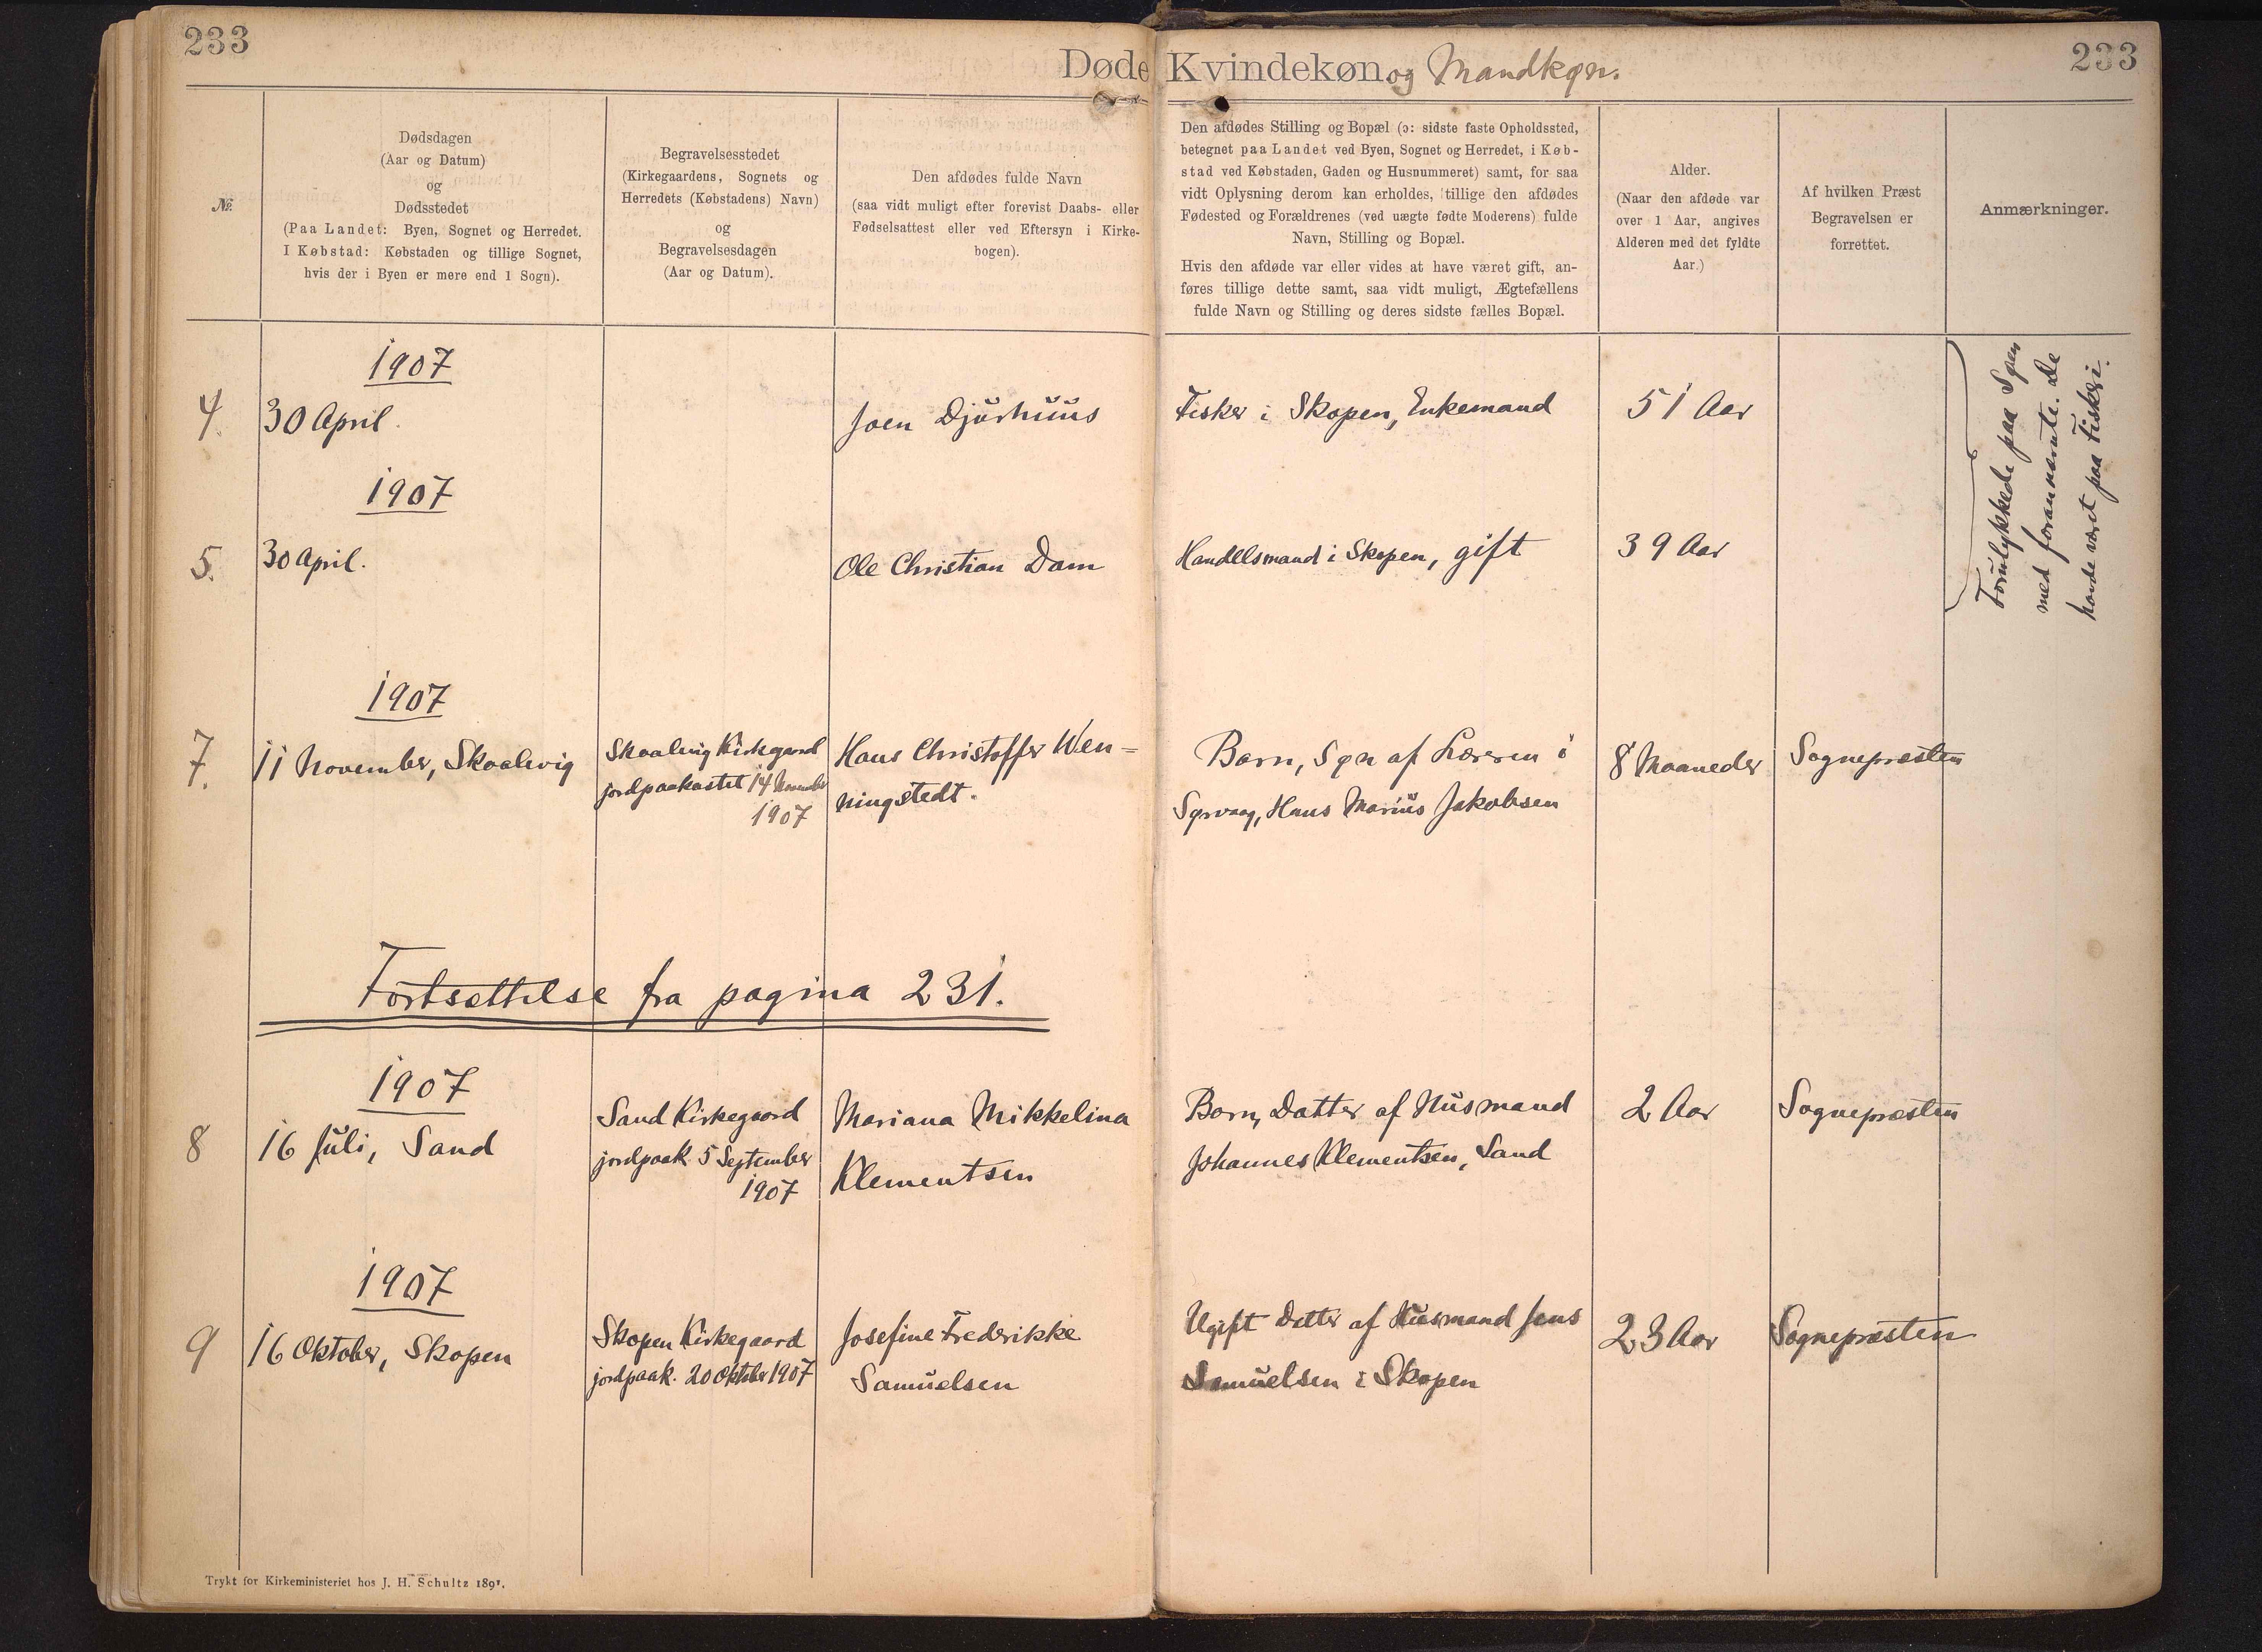 233
Døde Kvindekøn og Mandkøn.
233
№
Dødsdagen
(Aar og Datum)
og
Dødsstedet
(Paa Landet: Byen, Sognet og Herredet.
I Købstad: Købstaden og tillige Sognet,
hvis der i Byen er mere end 1 Sogn).
Begravelsesstedet
(Kirkegaardens, Sognets og
Herredets (Købstadens) Navn)
og
Begravelsesdagen
(Aar og Datum).
Den afdødes fulde Navn
(saa vidt muligt efter forevist Daabs- eller
Fødselsattest eller ved Eftersyn i Kirke-
bogen).
Den afdødes Stilling og Bopæl (ɔ: sidste faste Opholdssted,
betegnet paa Landet ved Byen, Sognet og Herredet, i Køb-
stad ved Købstaden, Gaden og Husnummeret) samt, for saa
vidt Oplysning derom kan erholdes, tillige den afdødes
Fødested og Forældrenes (ved uægte fødte Moderens) fulde
Navn, Stilling og Bopæl.
Hvis den afdøde var eller vides at have været gift, an-
føres tillige dette samt, saa vidt muligt, Ægtefællens
fulde Navn og Stilling og deres sidste fælles Bopæl.
Alder.
(Naar den afdøde var
over 1 Aar, angives
Alderen med det fyldte
Aar.)
Af hvilken Præst
Begravelsen er
forrettet.
Anmærkninger.
1907
4.
30 April.
Joen Djurhuus
Fisker i Skopen, Enkemand
51 Aar
Forulykkede paa Søen
med forannævnte. De
havde været paa Fiskeri.
1907
5.
30 April.
Ole Christian Dam
Handelsmand i Skopen, gift
39 Aar
1907
7.
11 November, Skaalevig
Skaalevig Kirkegaard
jordpaakastet 14 November
1907
Hans Christoffer Wen=
ningstedt.
Barn, Søn af Læreren i
Sørvaag, Hans Marius Jakobsen
8 Maaneder
Sognepræsten
Fortsættelse fra pagina 231.
1907
8
16 Juli, Sand
Sand Kirkegaard
jordpaak. 5 September
1907
Mariana Mikkelina
Klementsen
Barn, Datter af Husmand
Johannes Klementsen, Sand
2 Aar
Sognepræsten
1907
9
16 Oktober, Skopen
Skopen Kirkegaard
jordpaak. 20 Oktober 1907
Josefine Frederikke
Samuelsen
Ugift Datter af Husmand Jens
Samuelsen i Skopen
23 Aar
Sognepræsten
Trykt for Kirkeministeriet hos J. H. Schultz 1891.